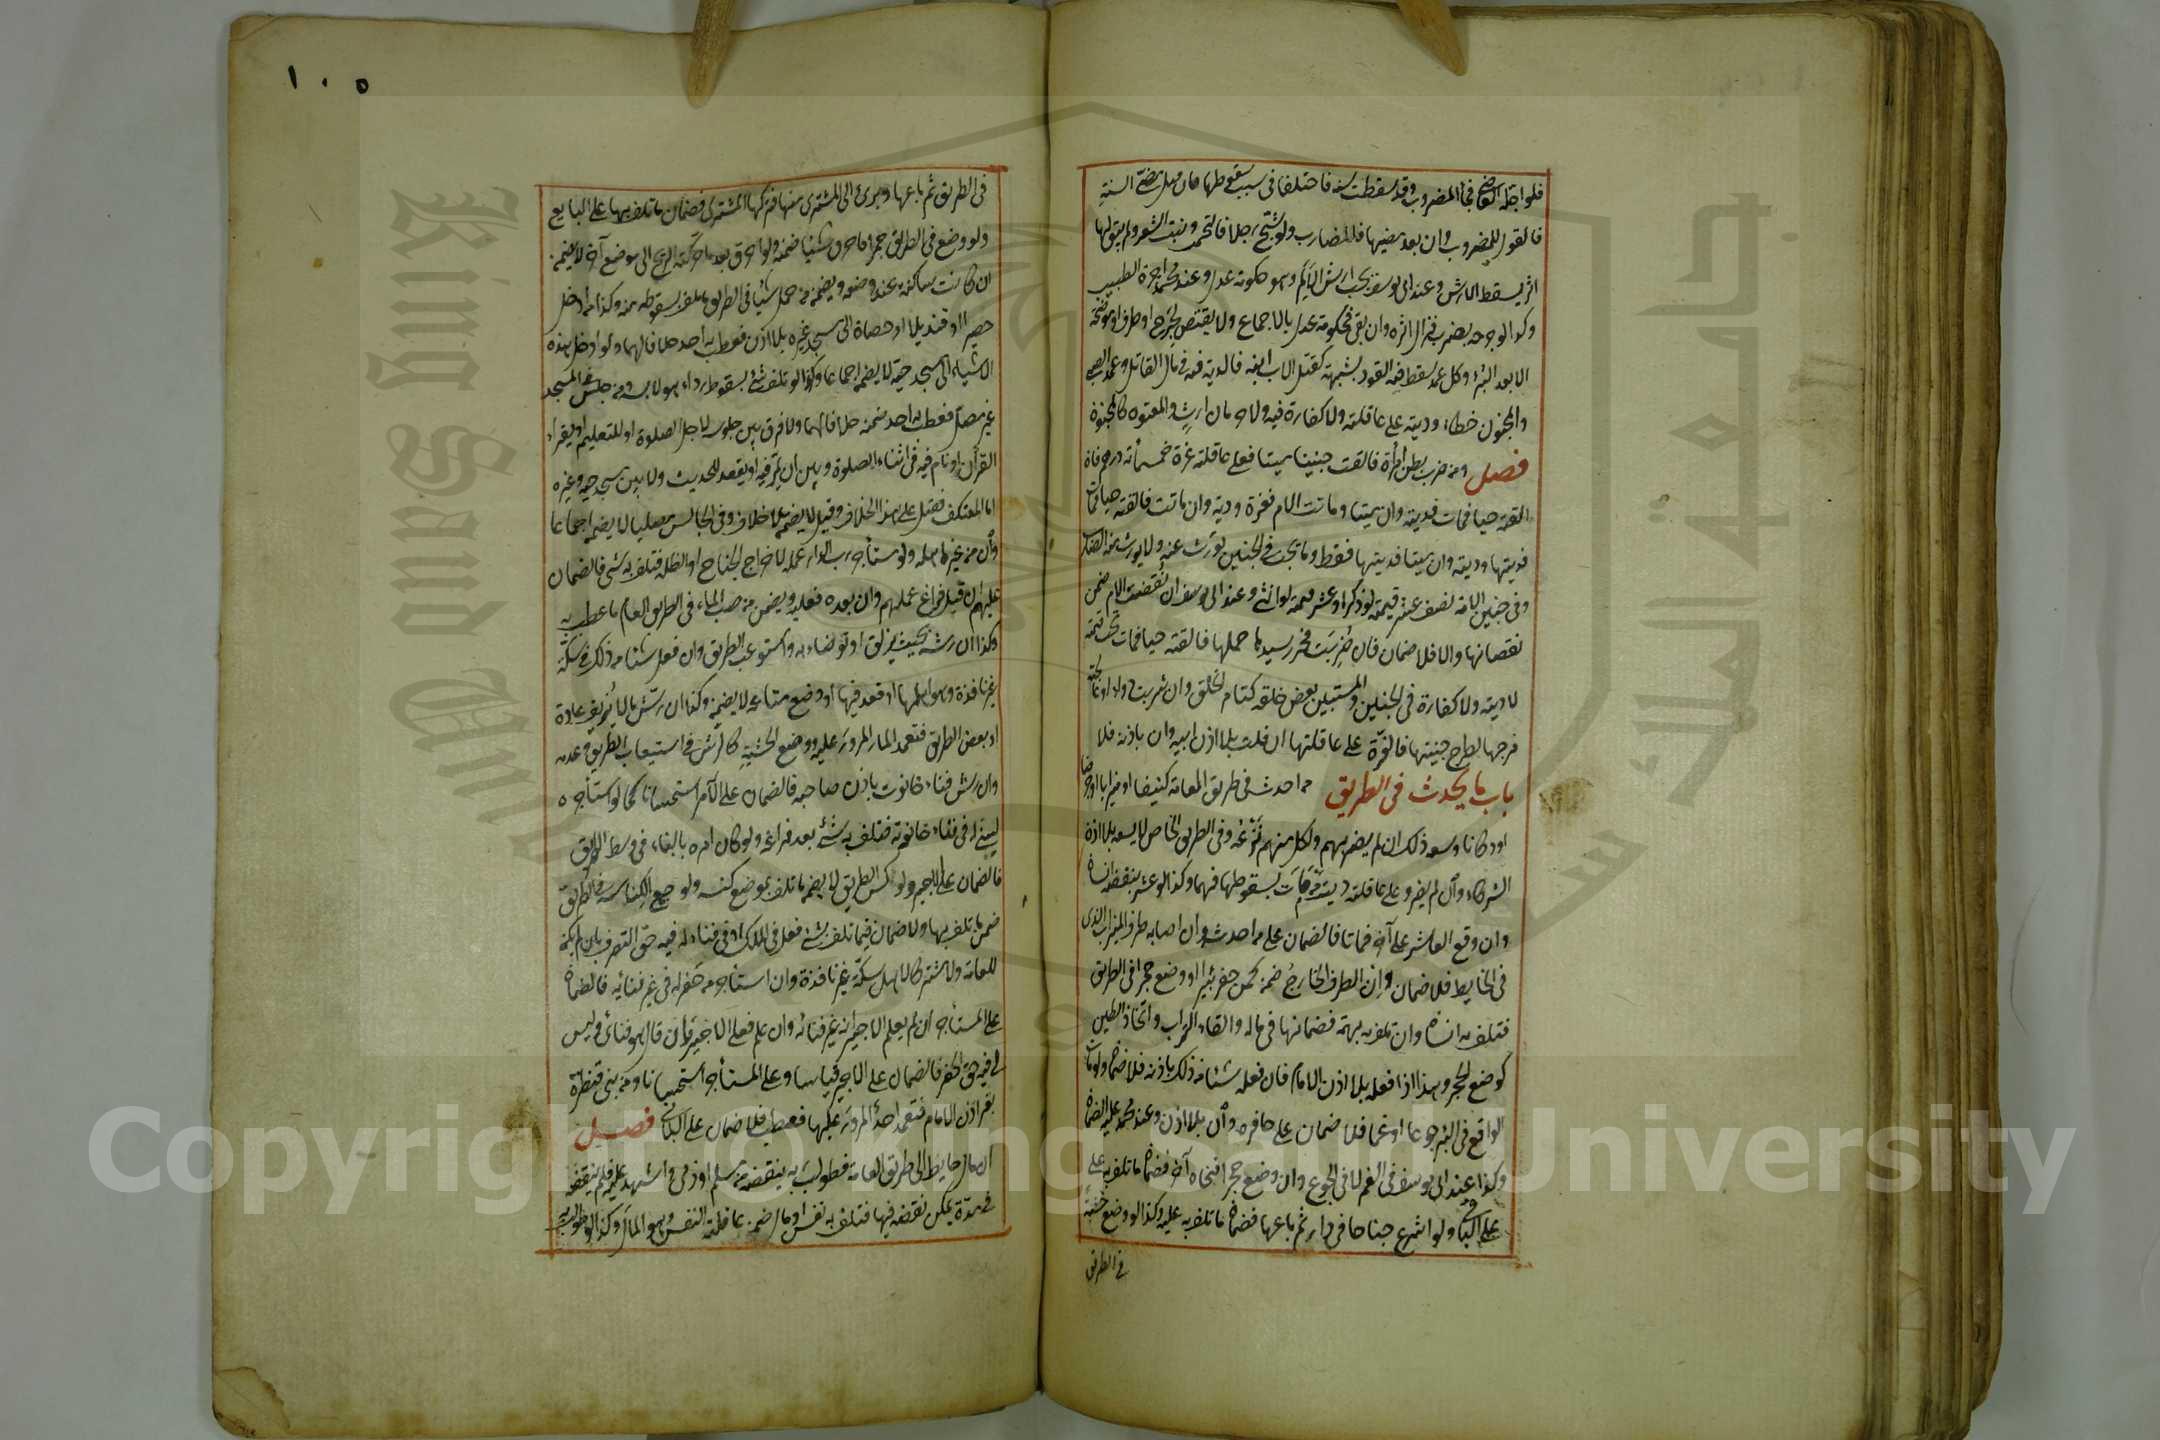 فلو اجله القاضي فجاء المضروب وقد سقطت سنه فاختلفا في سبب سقوطها فان قبل مضى السنة
فالقول للمضروب وان بعد مضيها فللضارب ولو شج رجلا فالتحمت ونبت الشعر ولم يبق لها
اثر يسقط الارش وعند ابي يوسف يجب ارش الالم وهو حكومة عدل وعند محمد اجرة الطبيب
وكذا لو جرحه بضرب فزال اثره وان بقي فحكومة عدل بالاجماع ولا يقتص لجرح او طرف او موضحة
الا بعد البرء وكل عمد سقط فيه القود بشبهة كقتل الاب ابنه فالدية فيه في مال القاتل وعمد الصبي
والمجنون خطاء وديته على عاقلته ولا كفارة فيه ولا حرمان ارث والمعتوه كالمجنون
فصل ومن ضرب بطن امرأة فالقت جنينا ميتا فعلى عاقلته غرة خمسمأة درهم فان
القته حيا فمات فدية وان ميتا وماتت الام فغرة ودية وان ماتت فالقته حيا فمات
فديتها وديته وان ميتا فديتها فقط وما يجب في الجنين يورث عنه ولا يرث منه الضارب
وفي جنين الامة نصف عشر قيمته لو ذكرا وعشر قيمته لو انثى وعند ابي يوسف ان نقصت الام ضمن
نقصانها والا فلا ضمان فان ضربت فحرر سيدها حملها فالقته حيا فمات تجب قيمته
لا ديته ولا كفارة في الجنين والمستبين بعض خلقه كتام الخلق وان شربت دواء او عالجت
فرجها لطرح جنينها فالغرة على عاقلتها ان فعلت بلا اذن ابيه وان باذنه فلا
باب ما يحدث في الطريق من احدث في طريق العامة كنيفا او ميزابا او جرصنا
او دكانا وسعه ذلك ان لم يضر بهم ولكل منهم نزعه وفي الطريق الخاص لا يسعه بلا اذن
الشركاء وان لم يضر وعلى عاقلته دية من مات بسقوطها فيهما وكذا لو عثر بنقضه انسان
وان وقع العاثر على آخر فماتا فالضمان على من احدثه وان اصابه طرف الميزاب الذي
في الحايط فلا ضمان وان الطرف الخارج ضمن كمن حفر بئرا او وضع حجرا في الطريق
فتلف به انسان وان تلف به بهيمة فضمانها في ماله والقاء التراب واتخاذ الطين
كوضع الحجر وهذا اذا فعله بلا اذن الامام فان فعل شئا من ذلك باذنه فلا ضمان ولو مات
الواقع في البئر جوعا او غما فلا ضمان على حافره وان بلا اذن وعند محمد عليه الضمان
وكذا عند ابي يوسف في الغم لا في الجوع وان وضع حجرا فنحاه آخر فضمان ما تلف به على
على الثاني ولو اشرع جناحا في دار ثم باعها فضمان ما تلف به عليه وكذا لو وضع خشبة
في الطريق
١٠٥
في الطريق ثم باعها وبرئ الى المشتري منها فتركها المشتري فضمان ما تلف بها على البايع
ولو وضع في الطريق جمرا فاحرق شيئا ضمنه ولو احرق بعد ما حركته الريح الى موضع آخر لا يضمن
ان كانت ساكنة عند وضعه ويضمن من حمل شئا في الطريق ما تلف بسقوطه منه وكذا من ادخل
حصيرا او قنديلا او حصاة الى مسجد غيره بلا اذن فعطب به احد خلافا لهما ولو ادخل هذه
الاشياء الى مسجد حيه لا يضمن اجماعا وكذا لو تلف شئ بسقوط رداء هو لابسه ومن جلس في المسجد
غير مصل فعطب به احد ضمنه خلافا لهما ولا فرق بين جلوسه لاجل الصلوة او للتعليم او يقراء
القرآن او نام فيه في اثناء الصلوة وبين ان يمر فيه او يقعد للحديث ولا بين مسجد حيه وغيره
اما المعتكف فقيل على هذا الخلاف وقيل لا يضمن بلا خلاف وفي الجالس مصليا لا يضمن اجماعا
وان من غير اهله ولو استأجر رب الدار عملة لاخراج الجناح او الظلة فتلف به شئ فالضمان
عليهم ان قبل فراغ عملهم وان بعده فعليه ويضمن من صب الماء في الطريق العام ما عطب به
وكذا ان رشه بحيث يزلق او توضاء به واستوعب الطريق وان فعل شئا من ذلك في سكة
غير نافذة وهو اهلها او قعد فيها او وضع متاعه لا يضمن وكذا ان رش ما لا يزلق عادة
او بعض الطريق فتعمد المار المرور عليه ووضع الخشبة كالرش في استيعاب الطريق وعدمه
وان رش فناء حانوت باذن صاحبه فالضمان على الآمر استحسانا كما لو استأجره
ليبني له في فناء حانوته فتلف به شئ بعد فراغه ولو كان امره بالبناء في وسط الطريق
فالضمان على الاجير ولو كنس الطريق لا يضمن ما تلف بموضع كنسه ولو جمع الكناسة في الطريق
ضمن ما تلف بها ولا ضمان فيما تلف بشئ فعل في الملك او في فناء له فيه حق التصرف بان لم يكن
للعامة ولا مشتركا لاهل سكة غير نافذة وان استأجر من حفر له في غير فنائه فالضمان
على المستأجر ان لم يعلم الاجير انه غير فنائه وان علم فعلى الاجير وان قال هو فنائي وليس
لي فيه حق الحفر فالضمان على الاجير قياسا وعلى المستأجر استحسانا ومن بنى قنطرة
بغير اذن الامام فتعمد احد المرور عليها فعطب فلا ضمان على الباني فصل
ان مال حايط الى طريق العامة فطولب ربه بنقضه من مسلم او ذمي واشهد عليه فلم ينقضه
في مدة يمكن نقضه فيها فتلف به نفس او مال ضمن عاقلته النفس وهو المال وكذا لو طولب به
King Saud University
جامعة الملك سعود
Copyright to King Saud University